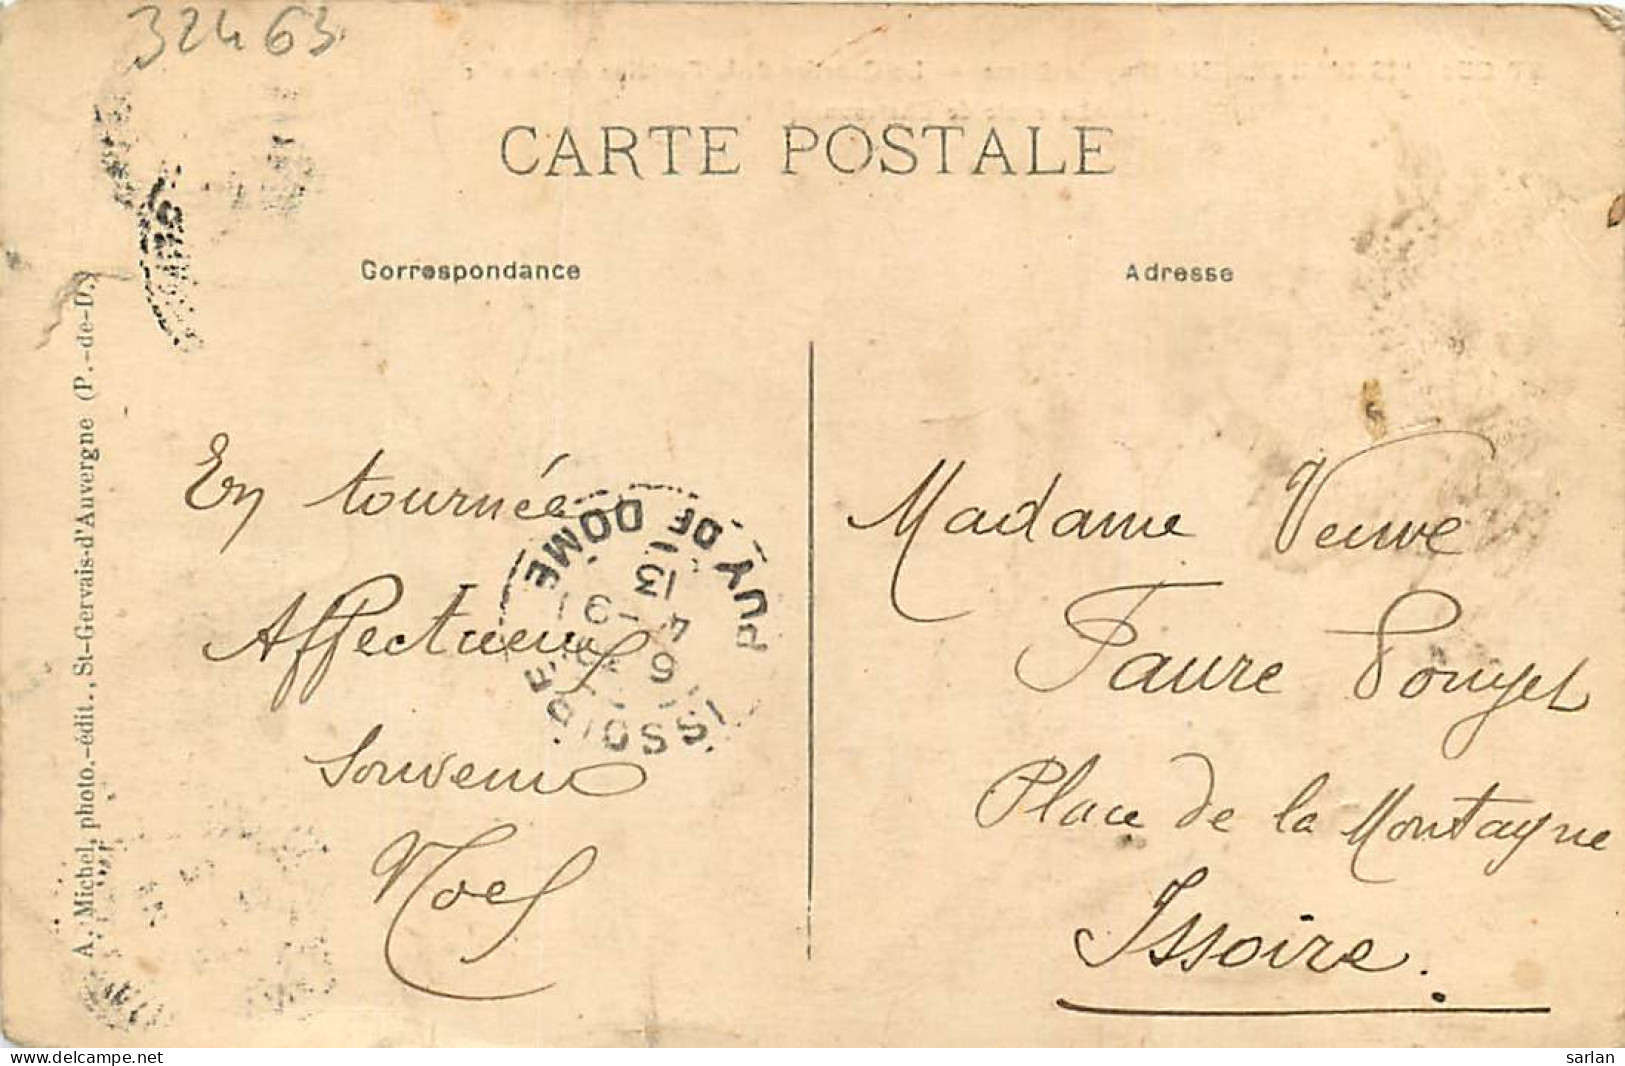 32463
CARTE POSTALE
Correspondance
Adresse
A. Michel, photo.-édit., St-Gervais-d'Auvergne (P.-de-D.)
En tournée
Affectueux
Souvenir
Noel
ISSOIRE
PUY DE DÔME
13
Madame Veuve
Faure Pouget
Place de la Montagne
Issoire.
delcampe.net
sarlan